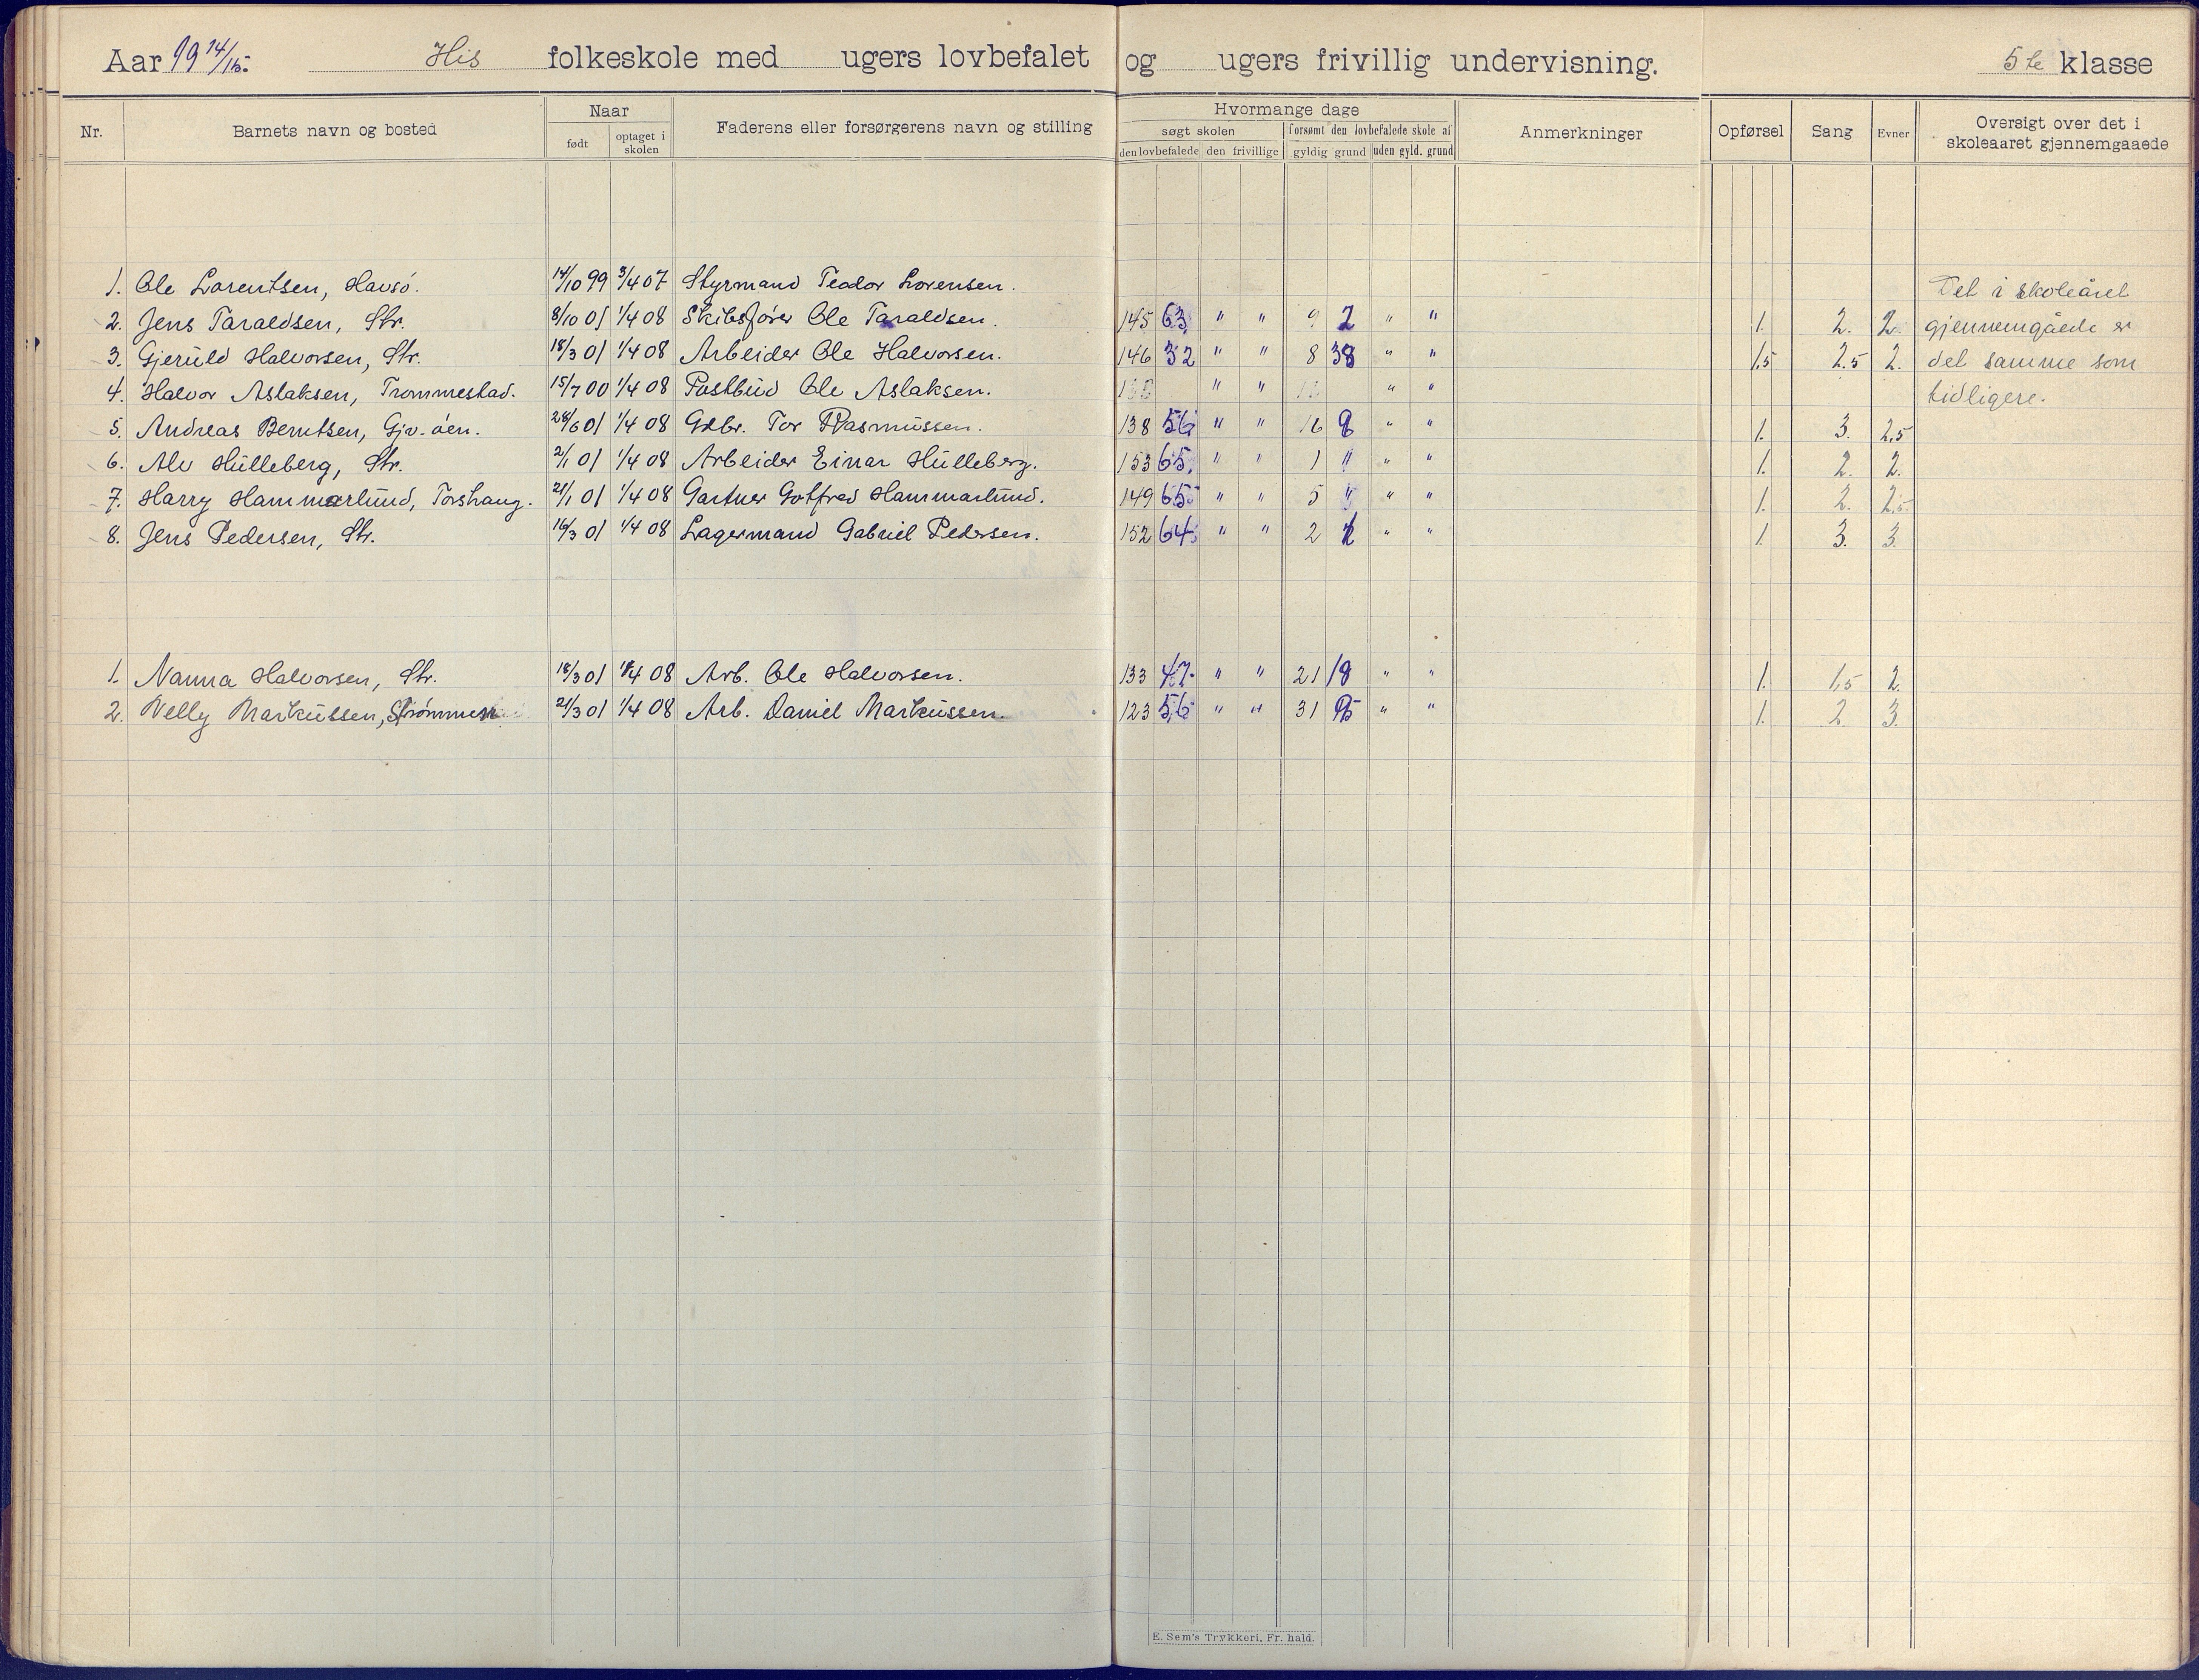 Aar 1914/15. His folkeskole med ugers lovbefalet og ugers frivillig undervisning. 5te klasse
Nr. Barnets navn og bosted Naar født optaget i skolen Faderens eller forsørgerens navn og stilling Hvormange dage søgt skolen den lovbefalede den frivillige forsømt den lovbefalede skole af gyldig grund uden gyld. grund Anmerkninger Opførsel Sang Evner Oversigt over det i skoleaaret gjennemgaaede
1. Ole Lorentsen, Havsö. 14/10 99 3/4 07 Styrmand Teodor Lorensen. Det i skoleåret
2. Jens Taraldsen, Str. 8/10 01 1/4 08 Skibsfører Ole Taraldsen. 145 63 " " 9 2 " " 1. 2. 2. gjennemgåede er
3. Gjeruld Halvorsen, Str. 18/3 01 1/4 08 Arbeider Ole Halvorsen. 146 32 " " 8 38 " " 1,5 2.5 2. det samme som
4. Halvor Aslaksen, Trommestad. 15/7 00 1/4 08 Postbud Ole Aslaksen. " " " " tidligere.
5. Andreas Berntsen, Gjv. öen. 28/6 01 1/4 08 Gdbr. Tor Rasmussen. 138 56 " " 16 9 " " 1. 3. 2,5
6. Alv Hulleberg, Str. 2/1 01 1/4 08 Arbeider Einar Hulleberg. 153 65 " " 1 " " " 1. 2. 2.
7. Harry Hammarlund, Torshaug. 21/1 01 1/4 08 Gartner Gotfred Hammarlund. 149 65 " " 5 " " " 1. 2. 2,5
8. Jens Pedersen, Str. 16/3 01 1/4 08 Lagermand Gabriel Pedersen. 152 64 " " 2 " " 1. 3. 3.
1. Nanna Halvorsen, Str. 18/3 01 1/4 08 Arb. Ole Halvorsen. 133 47 " " 21 18 " " 1. 1,5 2.
2. Nelly Markussen, Strømmen 21/3 01 1/4 08 Arb. Daniel Markussen. 123 56 " " 31 " " 1. 2. 3.
E. Sem's Trykkeri, Fr. hald.